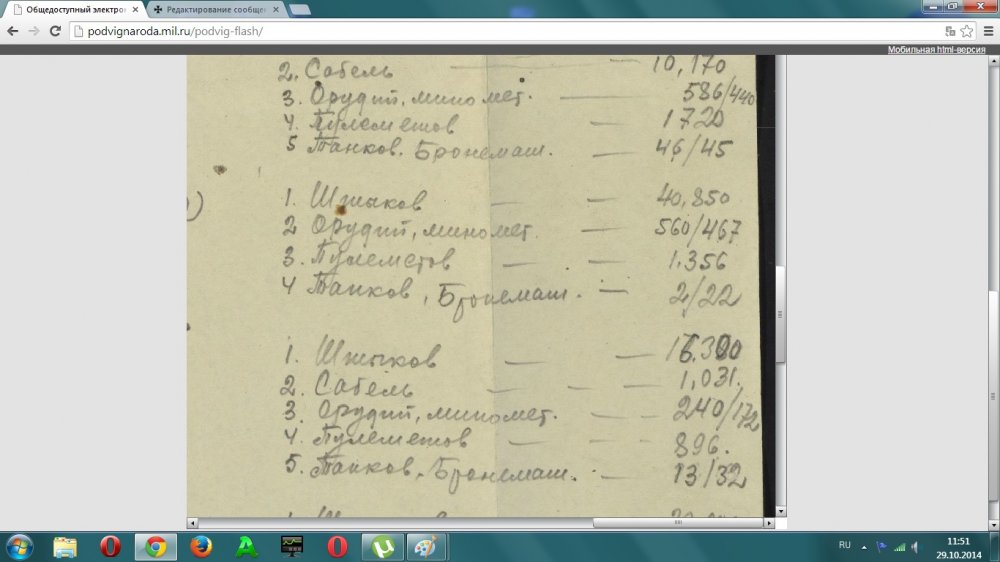 Общедоступный электрон
Редактирование сообщен
podvignaroda.mil.ru/podvig-flash/
Мобильная html-версия
2. Сабель — — 10,170
3. Орудий, миномет. — 586/440
4. Пулеметов — 1720
5 Танков. Бронемаш. — 46/45
)
1. Штыков — — 40,850
2 Орудий, миномет. — 560/467
3. Пулеметов — — 1.356
4 Танков, Бронемаш. — 2/22
1. Штыков — —
2. Сабель — — — 1,031.
3. Орудий, миномет. — — 240/172
4. Пулеметов — — — 896.
5. Танков. Бронемаш. — — 13/32
RU
11:51
29.10.2014